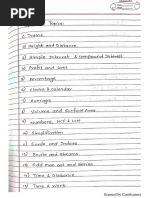 Topics:
1) Trains.
2) Height and Distance
3) Simple Interest & Compound Interest
4) Profit and Loss
5) Percentage
6) Clocks & Calendar
7) Averages
8) Volume and Surface Area
9) Numbers, HCF & LCM
10) Simplification
11) Surds and Indices
12) Boats and Streams
13) Odd man out and Series
14) Time & Distance
15) Time & Work
Scanned by CamScanner